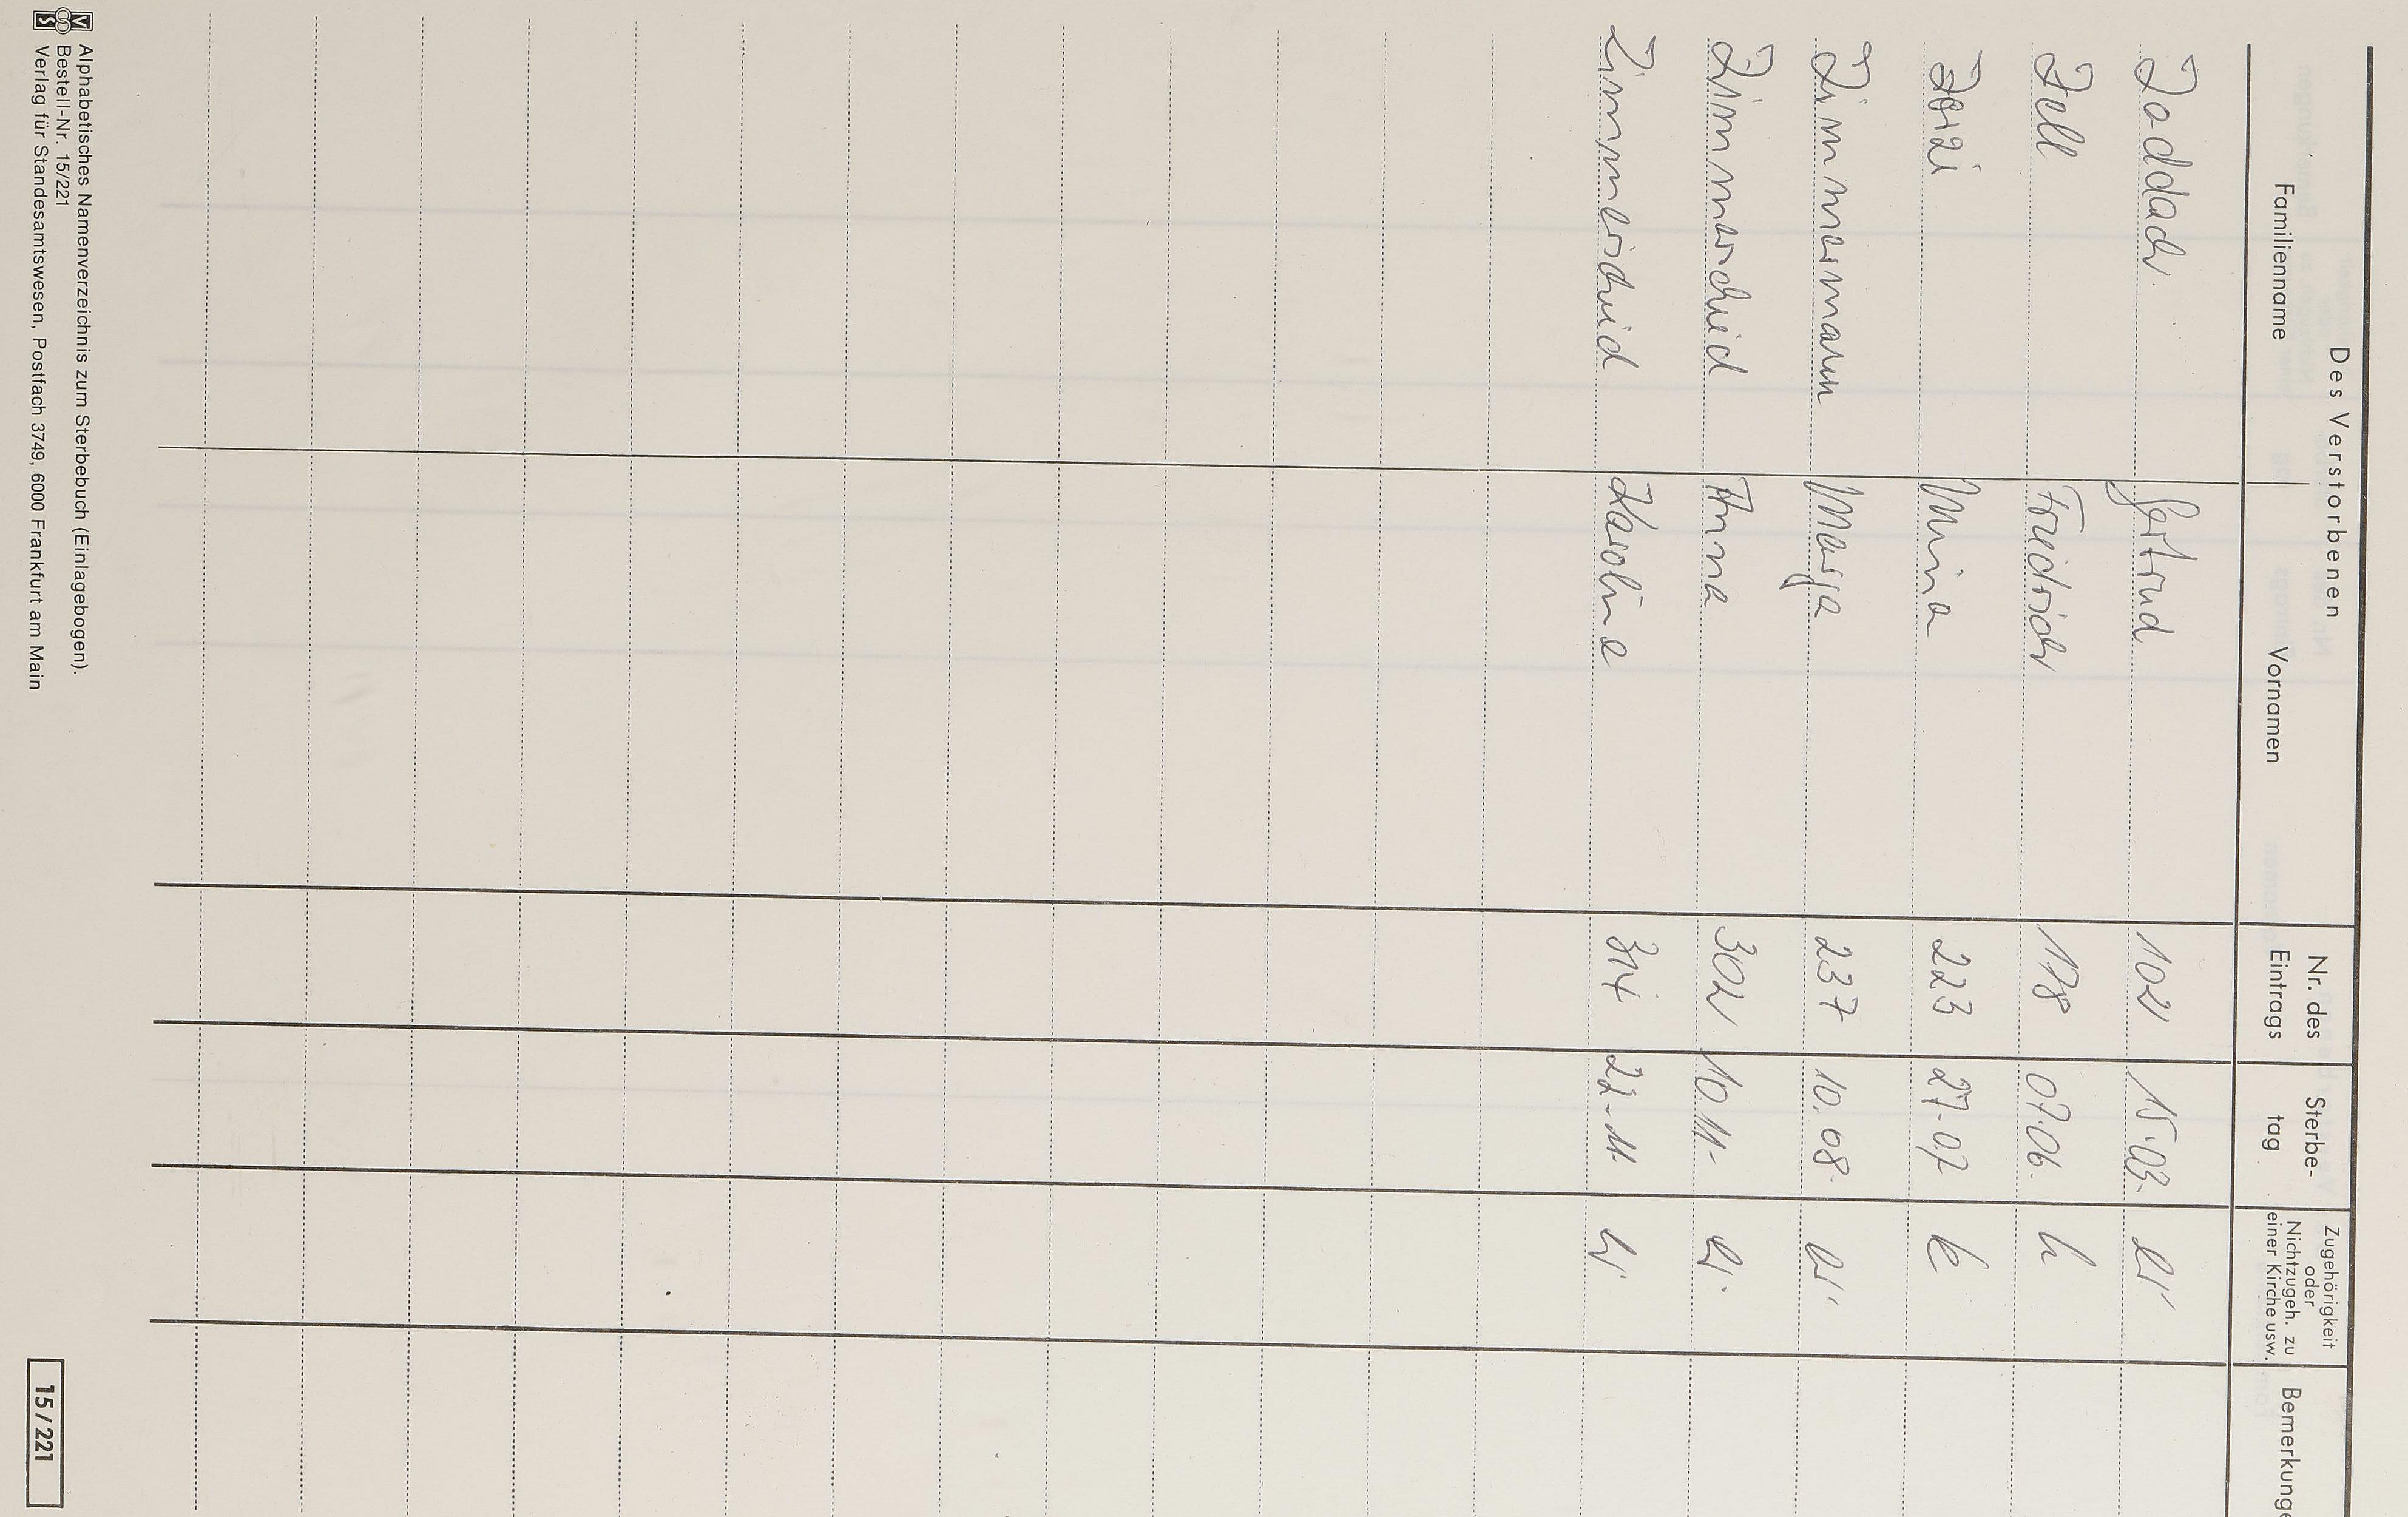 Des Verstorbenen
Familienname Vornamen Nr. des Eintrags Sterbe-tag Zugehörigkeit oder Nichtzugeh. zu einer Kirche usw. Bemerkunge
Zaddach Gertrud 102 15.03. ev
Zell Friedrich 178 07.06.
Mina 223 27.07 k
Zimmermann Marga 237 10.08. ev
Zimmerscheid Anna 302 10.11. ev.
Zimmerscheid Karoline 314 22.11. ev
Alphabetisches Namenverzeichnis zum Sterbebuch (Einlagebogen).
Bestell-Nr. 15/221
Verlag für Standesamtswesen, Postfach 3749, 6000 Frankfurt am Main
15/221